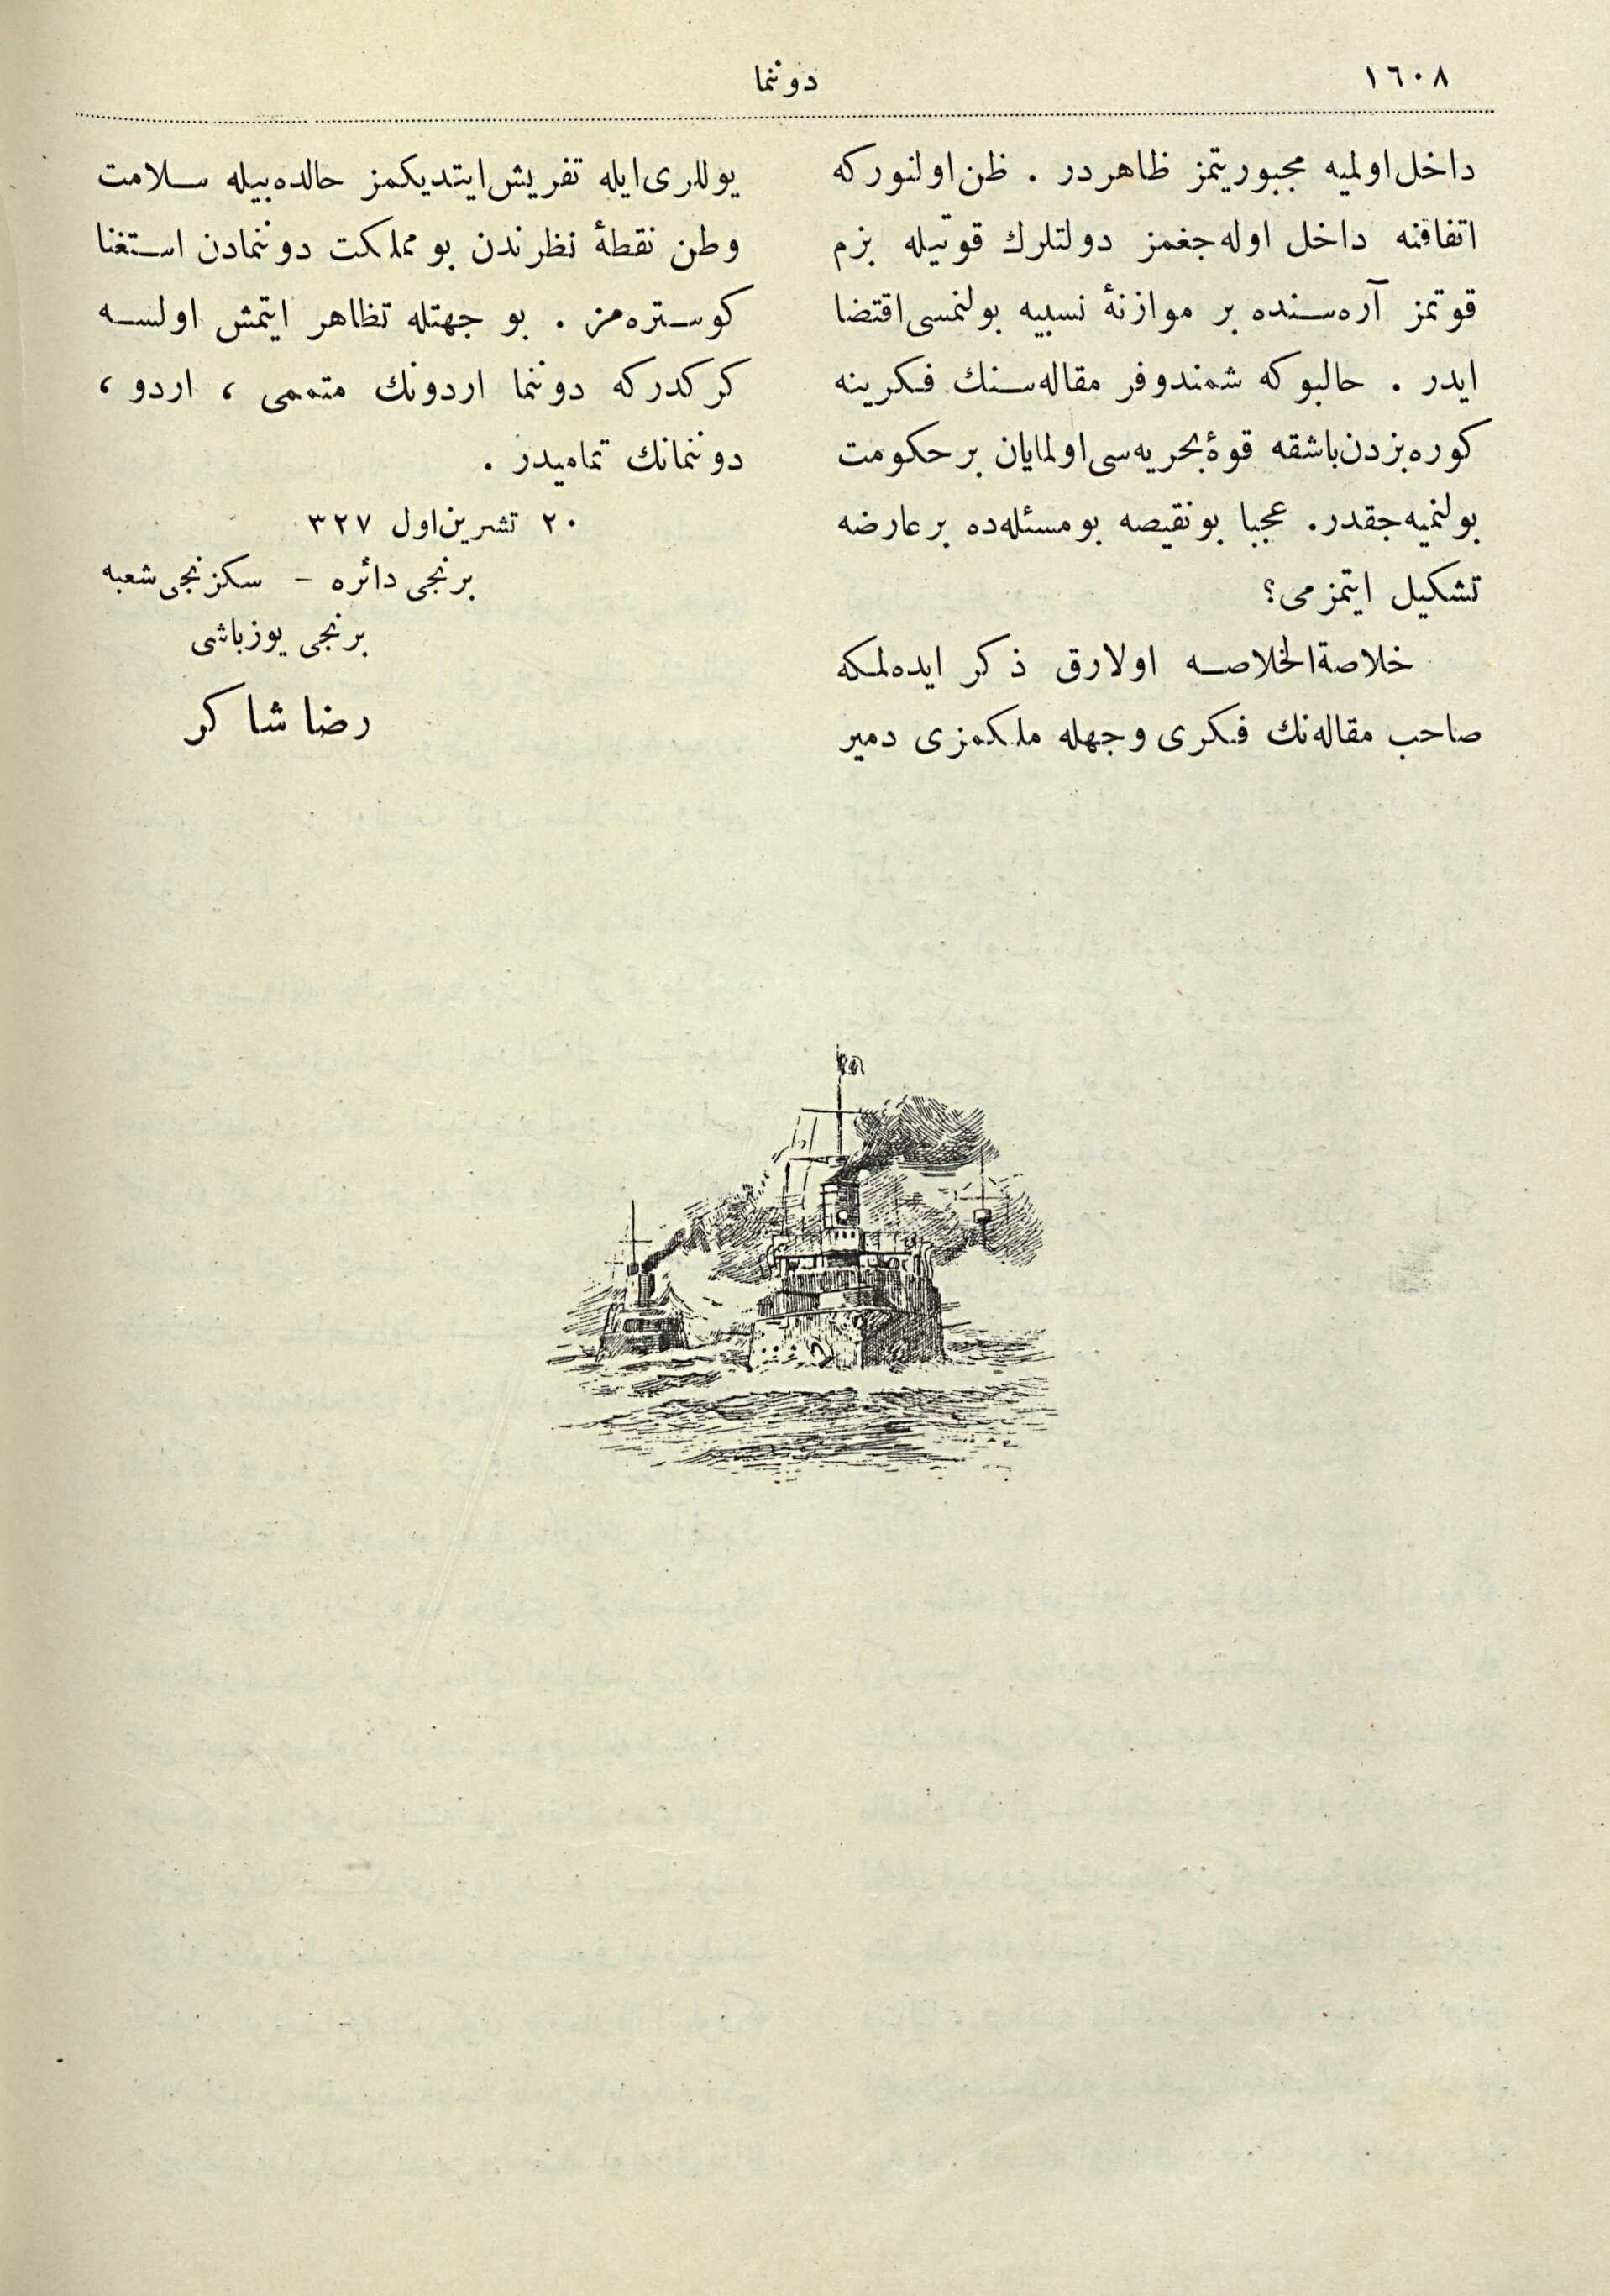 ١٦٠٨
دوننما
داخل اولميه مجبوريتمز ظاهردر . ظن اولنوركه
اتفاقنه داخل اوله‌جغمز دولتلرك قوتيله بزم
قوتمز آره‌سنده بر موازنهٔ نسبيه بولنمسى اقتضا
ايدر . حالبوكه شمندوفر مقاله‌سنك فكرينه
كوره بزدن باشقه قوهٔ بحريه‌سى اولمايان بر حكومت
بولنميه‌جقدر. عجبا بو نقيصه بو مسئله‌ده بر عارضه
تشكيل ايتمزمى؟
خلاصة الخلاصه اولارق ذكر ايده‌لمكه
صاحب مقاله‌نك فكرى وجهله ملكمزى دمير
يوللرى ايله تفريش ايتديكمز حالده بيله سلامت
وطن نقطهٔ نظرندن بو مملكت دوننمادن استغنا
كوستره‌مز . بو جهتله تظاهر ايتمش اولسه
كركدركه دوننما اردونك متممى ، اردو ،
دوننمانك تماميدر .
٢٠ تشرين اول ٣٢٧
برنجى دائره - سكزنجى شعبه
برنجى يوزباشى
رضا شاكر